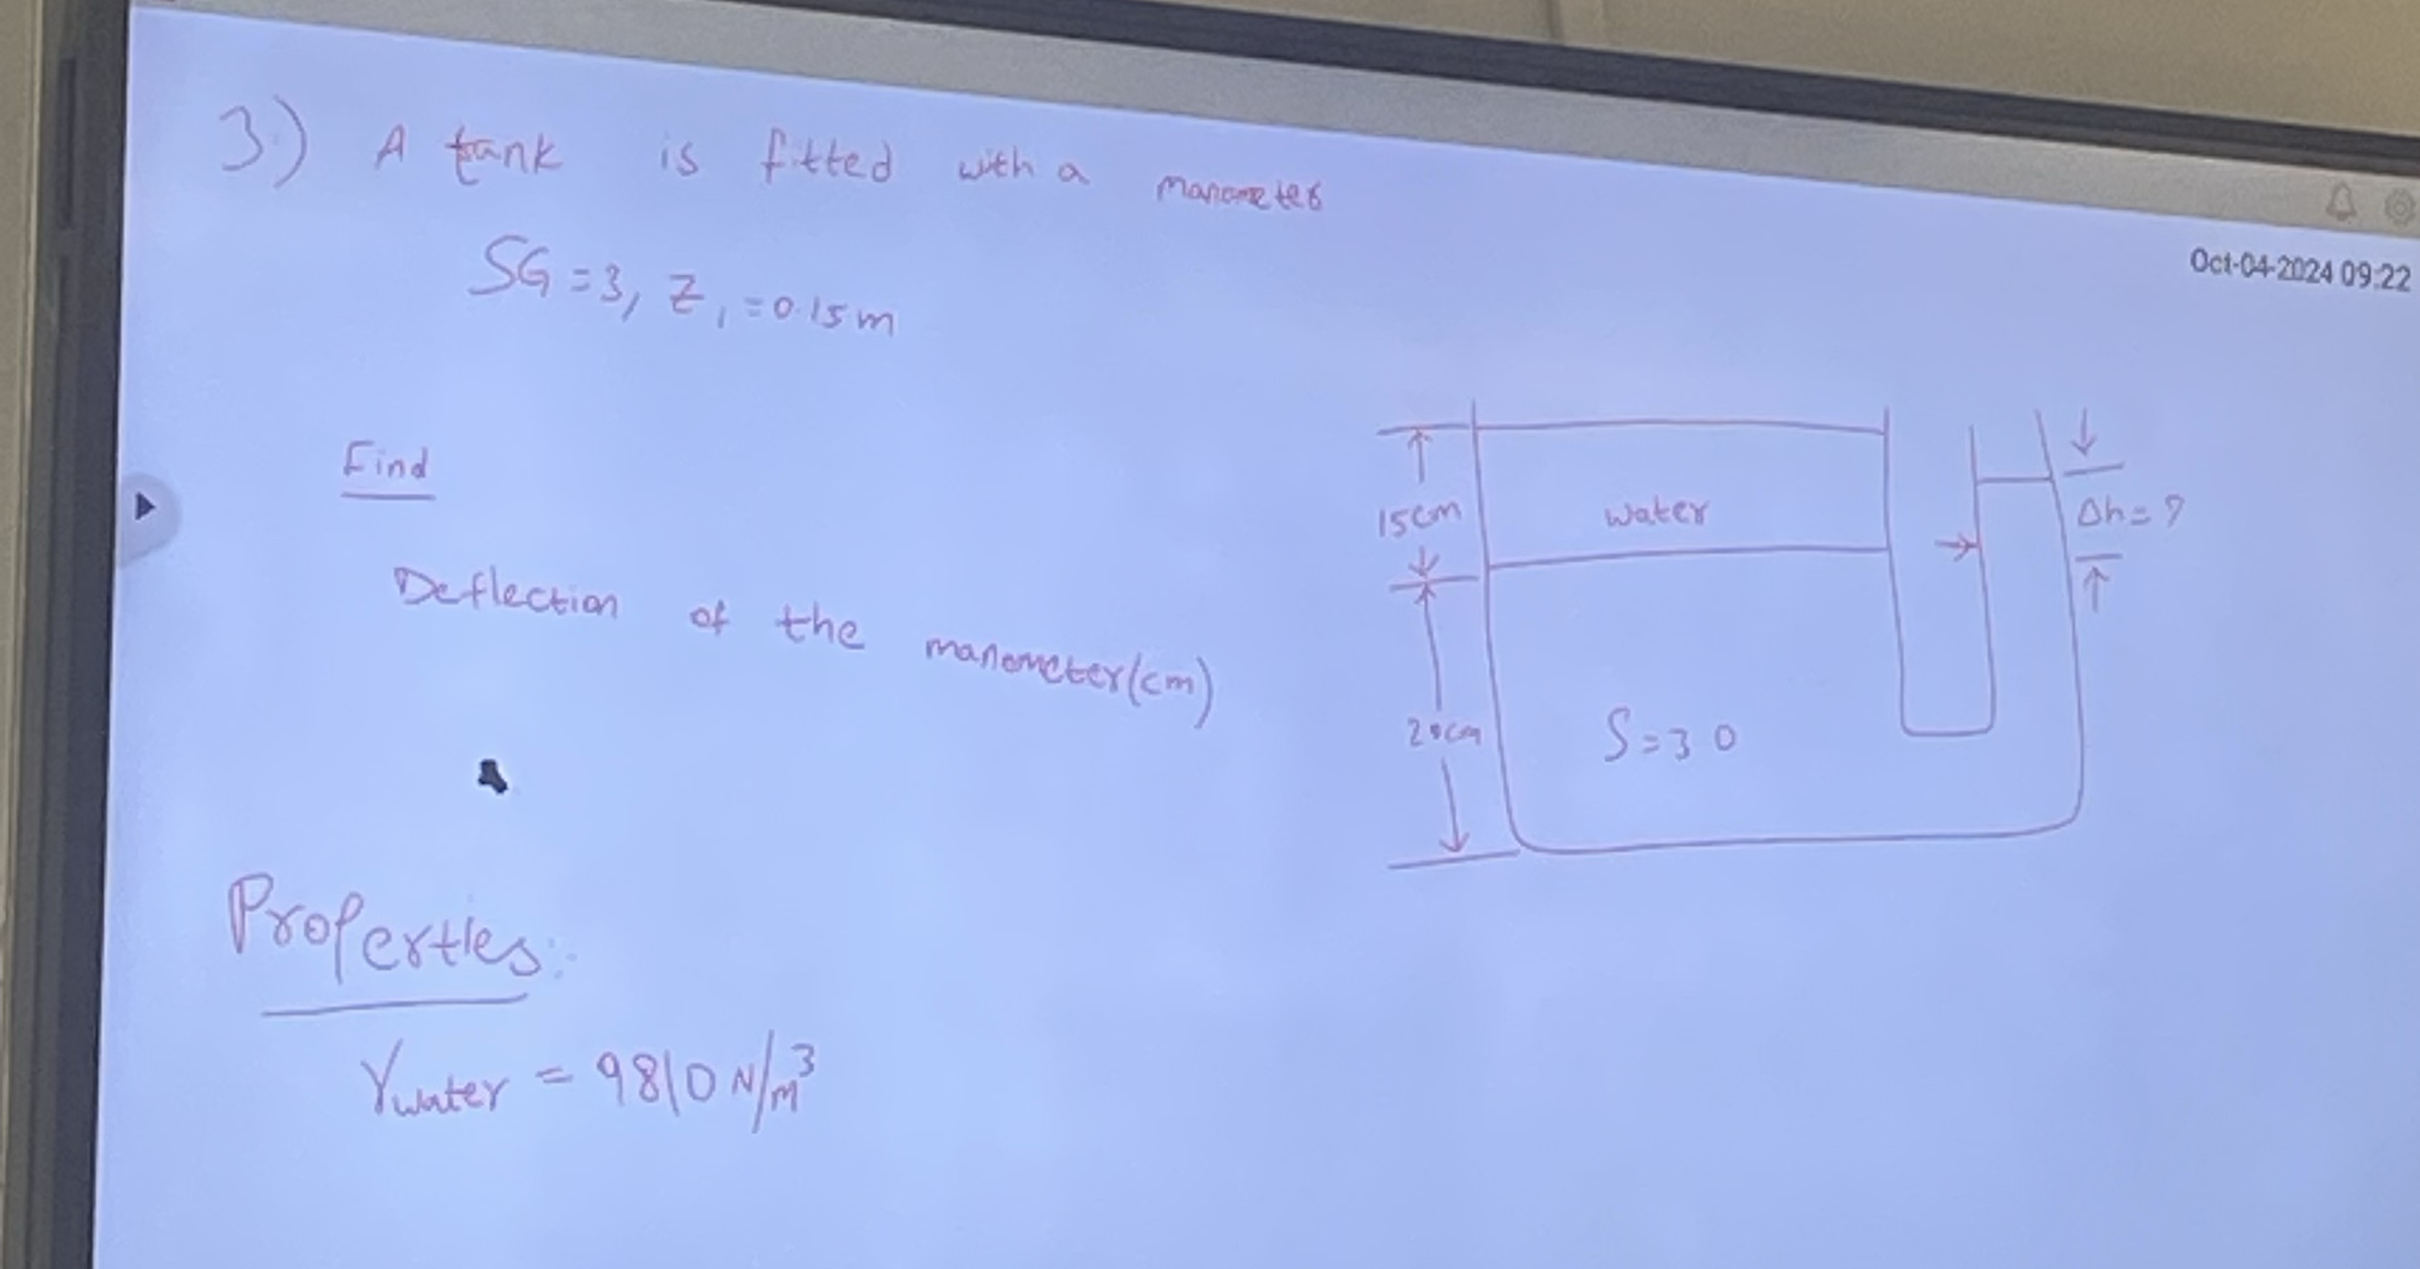 3.) A tank is fitted with a manometer
Oct-04-2024 09:22
SG = 3, Z₁ = 0.15 m
Find
15cm
water
Δh = ?
Deflection of the manometer (cm)
20cm
S = 3 0
Properties:
γwater = 9810 N/m³